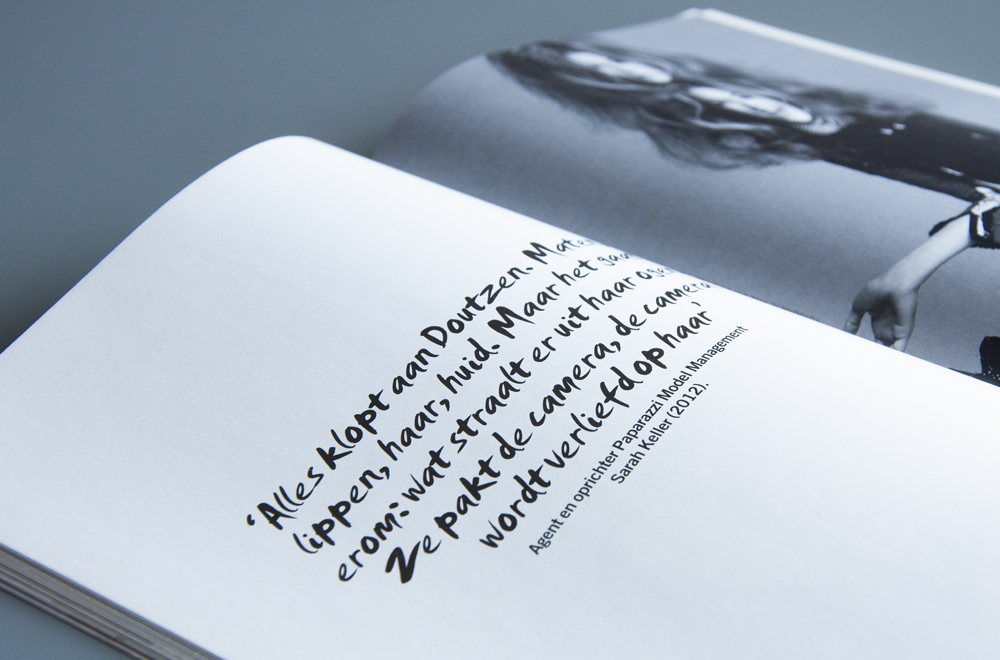 ‘Alles klopt aan Doutzen.
lippen, haar, huid. Maar het
erom: wat straalt er uit haar
Ze pakt de camera, de camera
wordt verliefd op haar’
Agent en oprichter Paparazzi Model Management
Sarah Keller (2012).